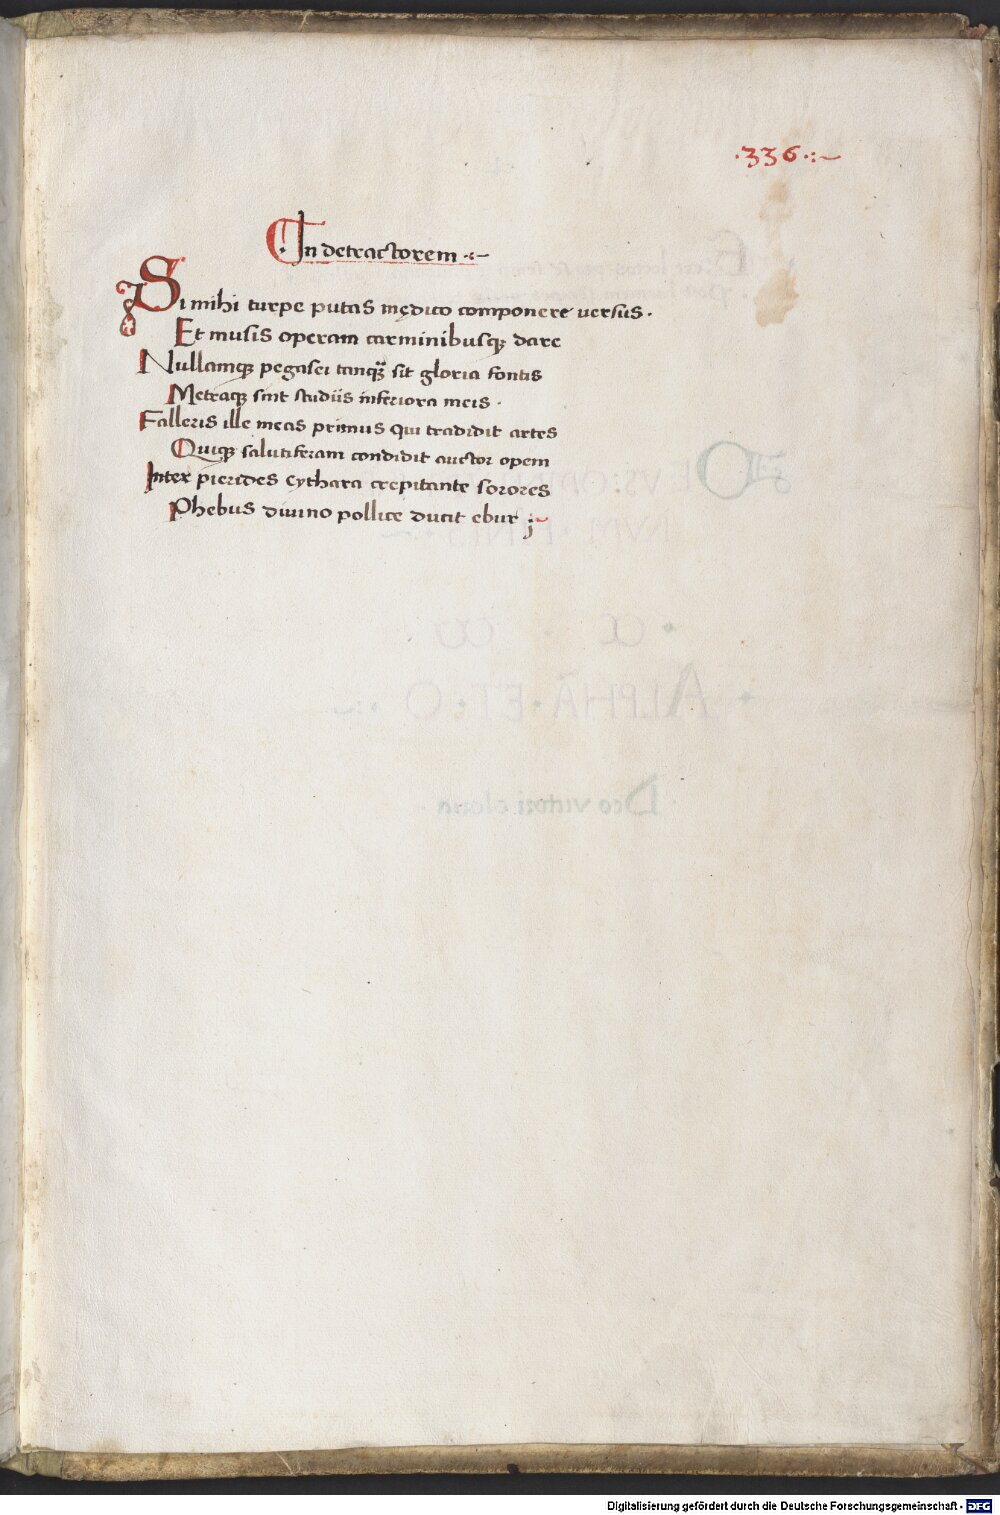 ·336·:~
In detractorem ·:~
Si mihi turpe putas mędico componere versus.
Et musis operam carminibusq; dare
Nullamq; pegasei tanq̃ sit gloria fontis
Metraq; sint studiis inferiora meis ·
Falleris ille meas primus qui tradidit artes
Quiq; salutiferam condidit auctor opem
Inter pierides cythara crepitante sorores
Phebus divino pollice ducit ebur ;~
Digitalisierung gefördert durch die Deutsche Forschungsgemeinschaft - DFG